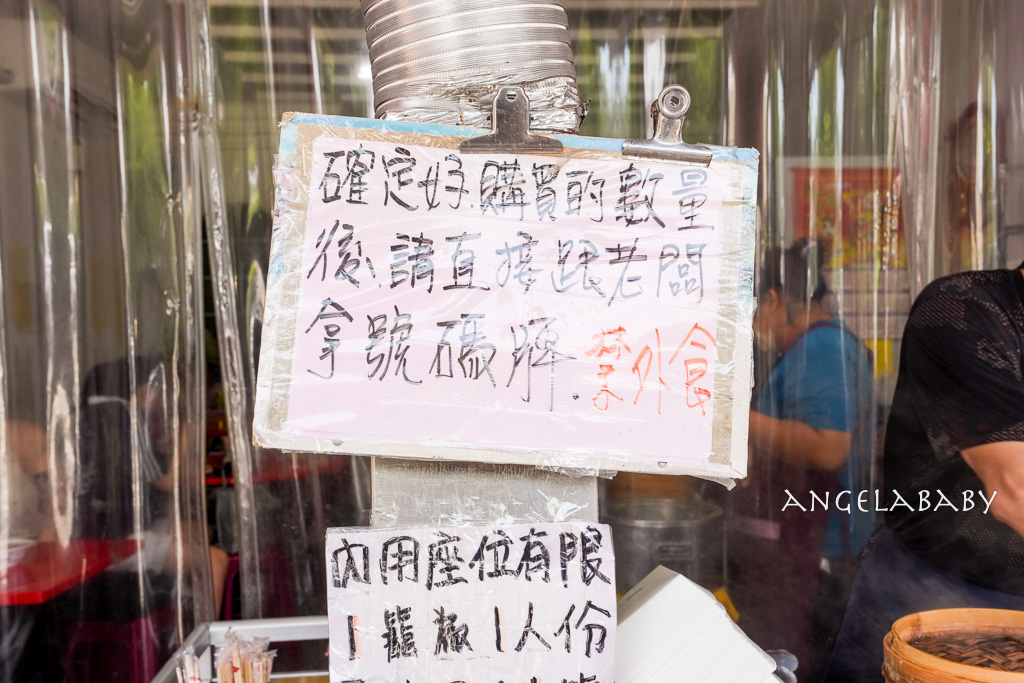 確定好購買的數量
後、請直接跟老闆
拿號碼牌. 禁外食
內用座位有限
1籠 1人份
ANGELABABY